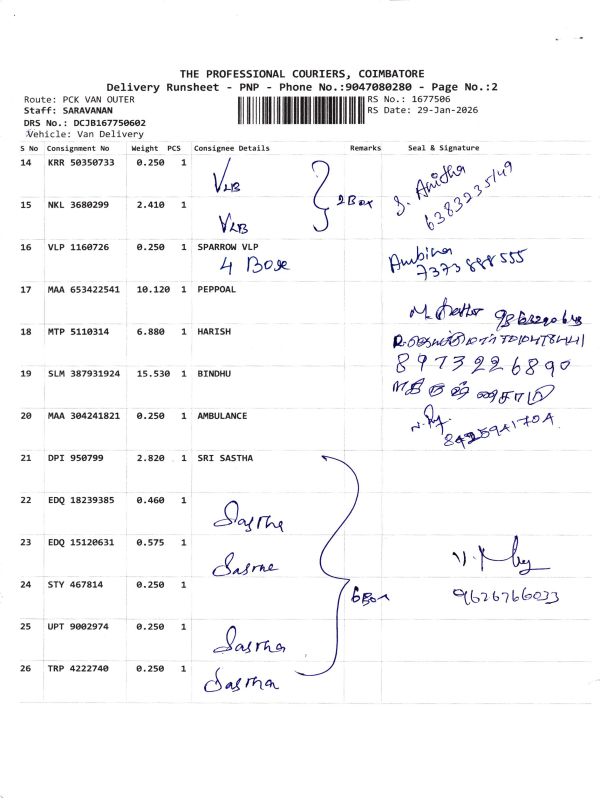 THE PROFESSIONAL COURIERS, COIMBATORE
Delivery Runsheet - PNP - Phone No.:9047080280 - Page No.:2
Route: PCK VAN OUTER
RS No.: 1677506
Staff: SARAVANAN
RS Date: 29-Jan-2026
DRS No.: DCJB167750602
Vehicle: Van Delivery
S No Consignment No Weight PCS Consignee Details Remarks Seal & Signature
14 KRR 50350733 0.250 1 VLB
2 Box S. Anitha
15 NKL 3680299 2.410 1 VLB
16 VLP 1160726 0.250 1 SPARROW VLP
4 Box Ambika
7373 888 555
17 MAA 653422541 10.120 1 PEPPOAL
18 MTP 5110314 6.880 1 HARISH
8973226890
19 SLM 387931924 15.530 1 BINDHU
20 MAA 304241821 0.250 1 AMBULANCE
21 DPI 950799 2.820 1 SRI SASTHA
22 EDQ 18239385 0.460 1 Sastha
23 EDQ 15120631 0.575 1 Sastha
24 STY 467814 0.250 1
6 Box 9626766033
25 UPT 9002974 0.250 1 Sastha
26 TRP 4222740 0.250 1 Sastha